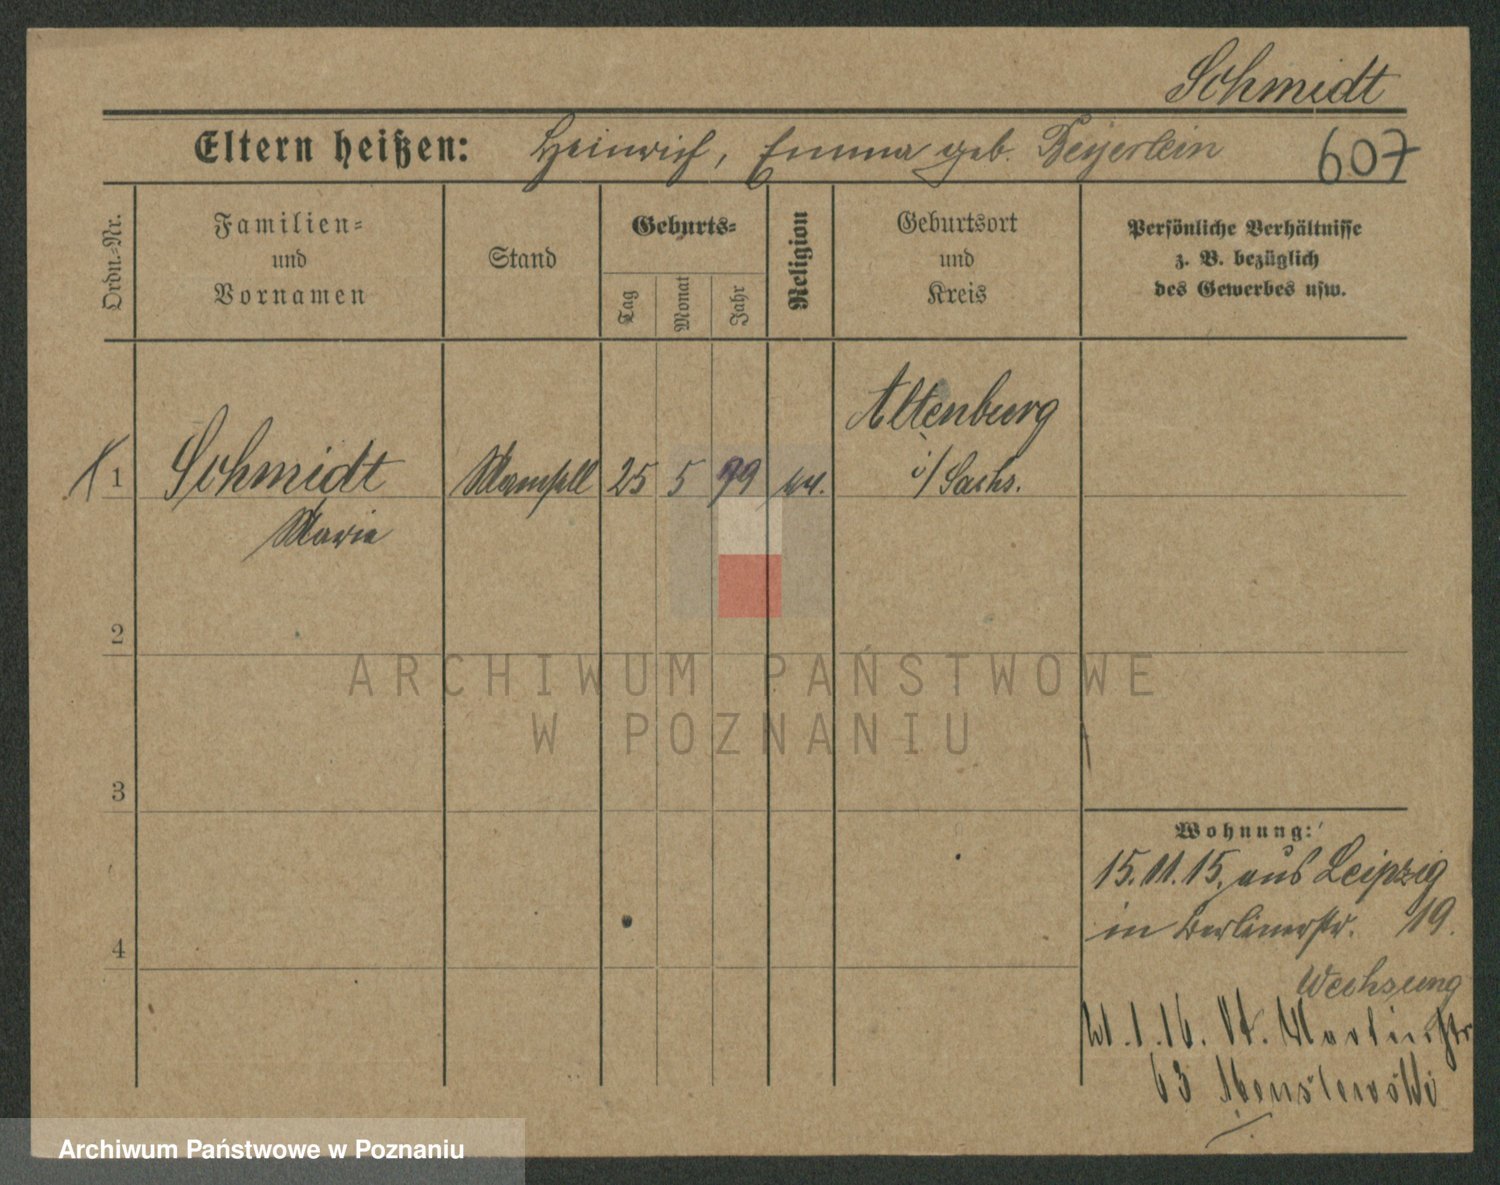 Schmidt
Eltern heißen: Heinrich, Emma geb. Beyerlein
607
Ordn.-Nr.
Familien-
und
Vornamen
Stand
Geburts-
Tag
Monat
Jahr
Religion
Geburtsort
und
Kreis
Persönliche Verhältnisse
z. B. bezüglich
des Gewerbes usw.
1
Schmidt
Marie
Mamsell
25
5
99
ev.
Altenburg
i/Sachs.
2
3
4
ARCHIWUM PAŃSTWOWE
W POZNANIU
Wohnung:
15.11.15. aus Leipzig
in Berlinerstr. 19.
Wechsung
1.16. St. Martinstr
63
Archiwum Państwowe w Poznaniu